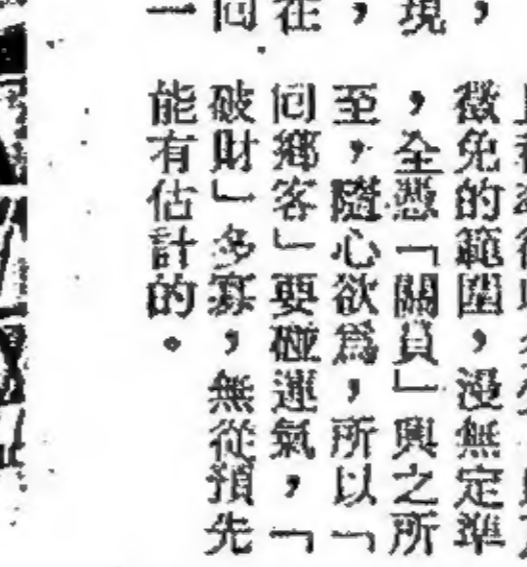 ，
現
，
在
一
徵免的範圍，漫無定準
，全憑「關員」興之所
至，隨心欲爲，所以「
囘鄉客」要碰運氣，「
破財」多寡，無從預先
能有估計的。